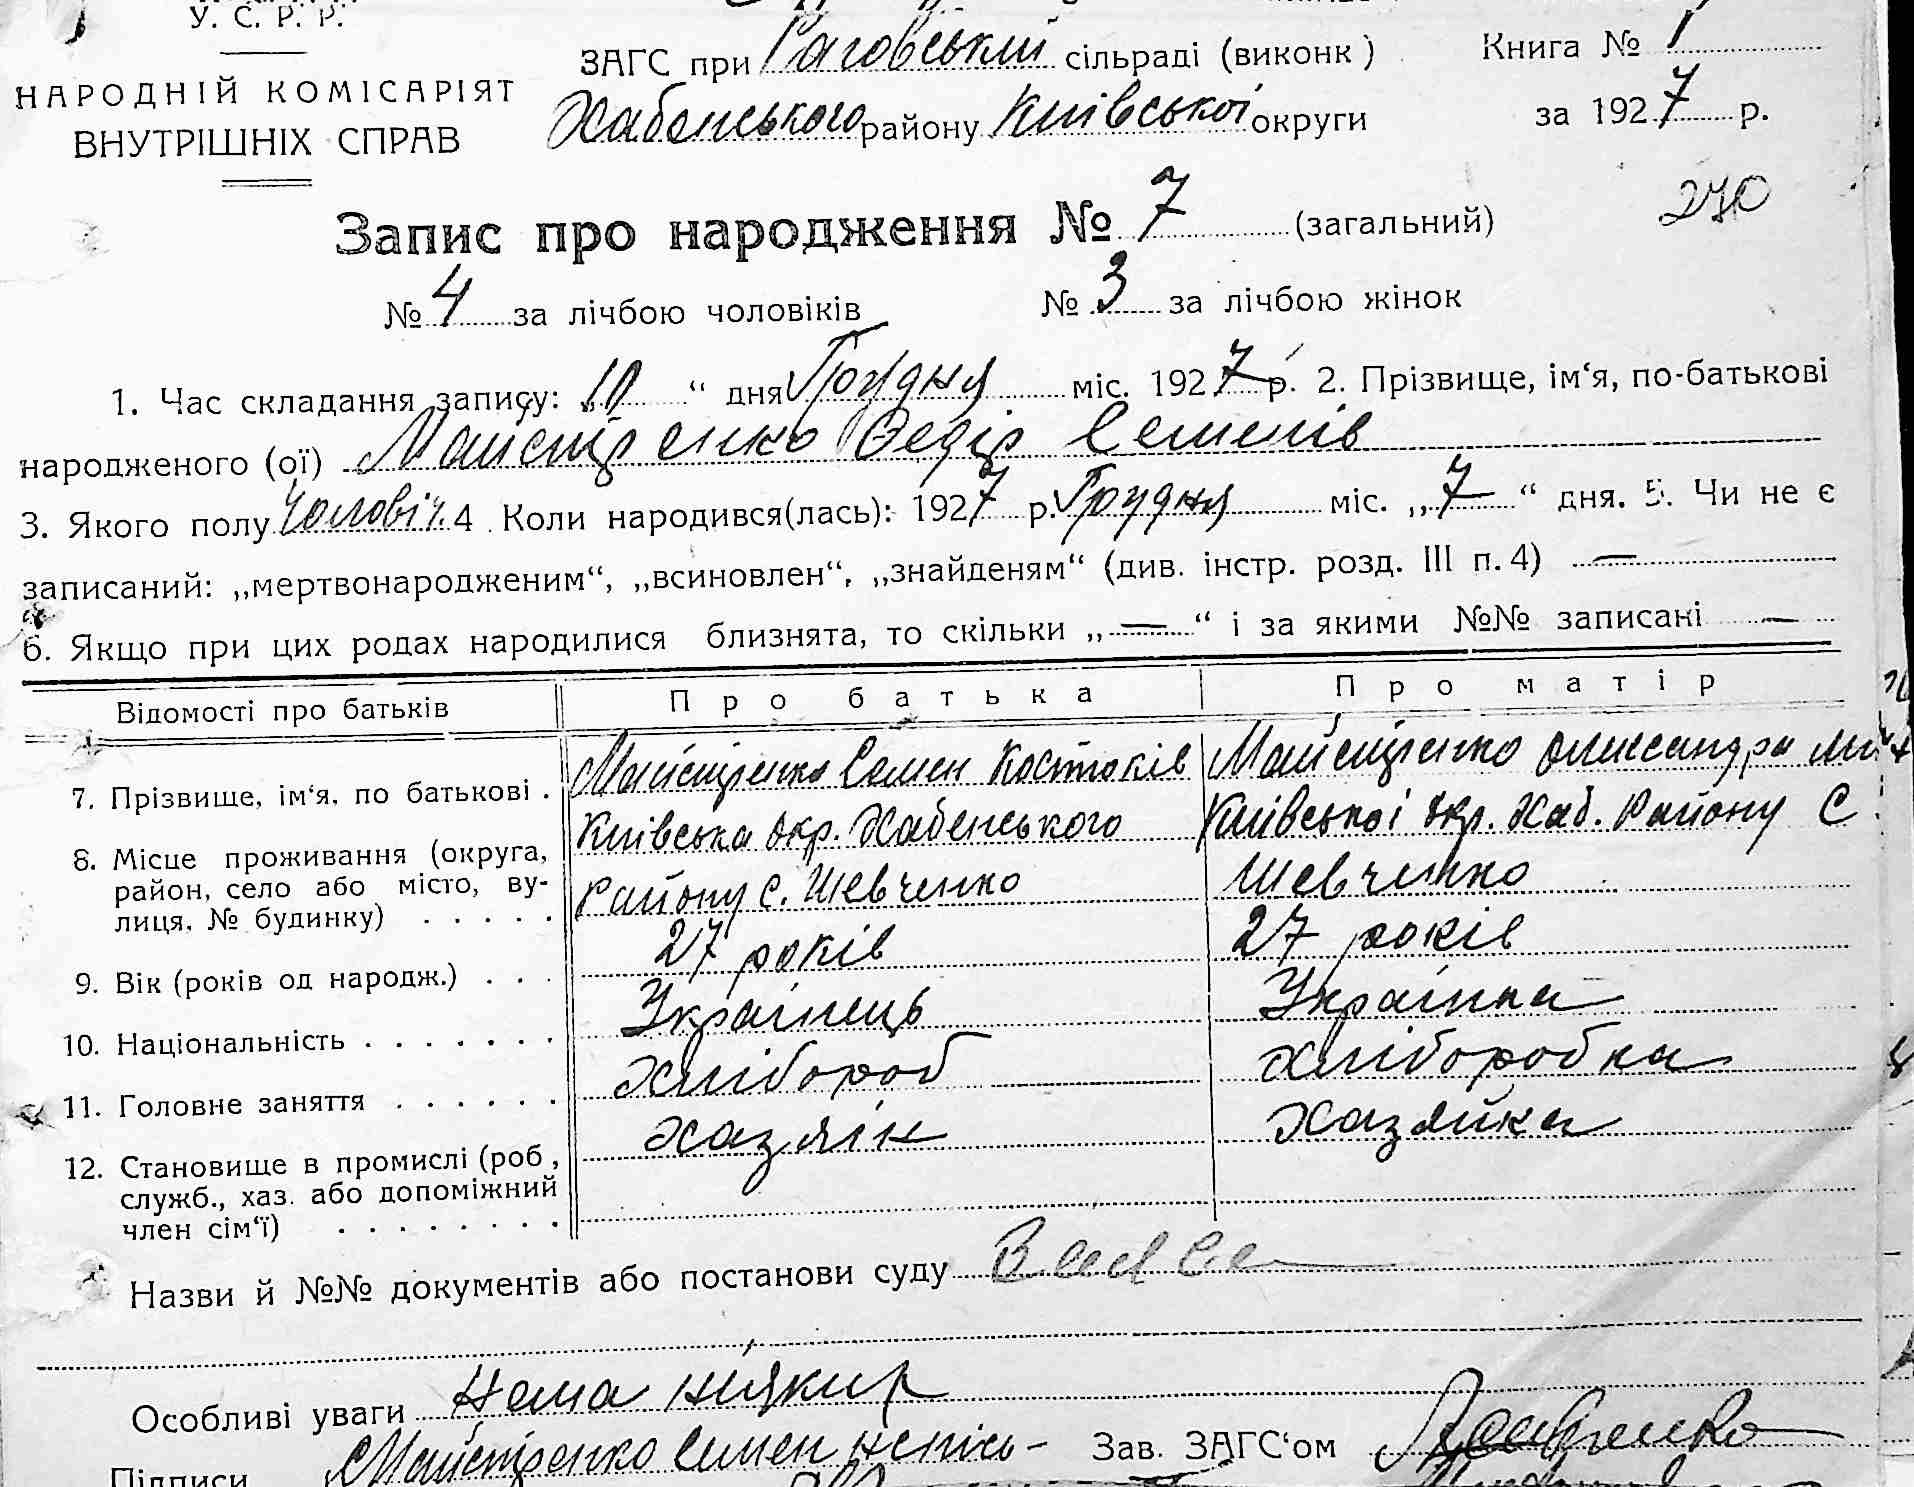 У. С. Р. Р.
НАРОДНІЙ КОМІСАРІЯТ
ВНУТРІШНІХ СПРАВ
ЗАГС при Раговський сільраді (виконк)
Хабенського району Київської округи
Книга № 1
за 1927 р.
270
Запис про народження № 7 (загальний)
№ 4 за лічбою чоловіків № 3 за лічбою жінок
1. Час складання запису: „10“ дня Грудня міс. 1927 р. 2. Прізвище, ім‘я, по-батькові
народженого (ої) Майстренко Федір Семенів
3. Якого полу Чоловіч. 4 Коли народився(лась): 1927 р. Грудня міс. „7“ дня. 5. Чи не є
записаний: „мертвонародженим“, „всиновлен“, „знайденям“ (див. інстр. розд. III п. 4) —
6. Якщо при цих родах народилися близнята, то скільки „—“ і за якими №№ записані —
Відомості про батьків Про батька Про матір
7. Прізвище, ім‘я, по батькові . Майстренко Семен Майстренко Олександра
8. Місце проживання (округа, район, село або місто, вулиця, № будинку) . . . . . Київська окр. Хабенського Району С. Шевченко Київської окр. Хаб. Району С Шевченко
9. Вік (років од народж.) . . . 27 років 27 років
10. Національність . . . . . . . Українець Українка
11. Головне заняття . . . . . . Хлібороб Хліборобка
12. Становище в промислі (роб, служб., хаз. або допоміжний член сім‘ї) . . . . . . . . Хазяїн Хазяйка
Назви й №№ документів або постанови суду Заява
Особливі уваги Нема ніяких
Підписи Майстренко Семен непись- Зав. ЗАГС‘ом